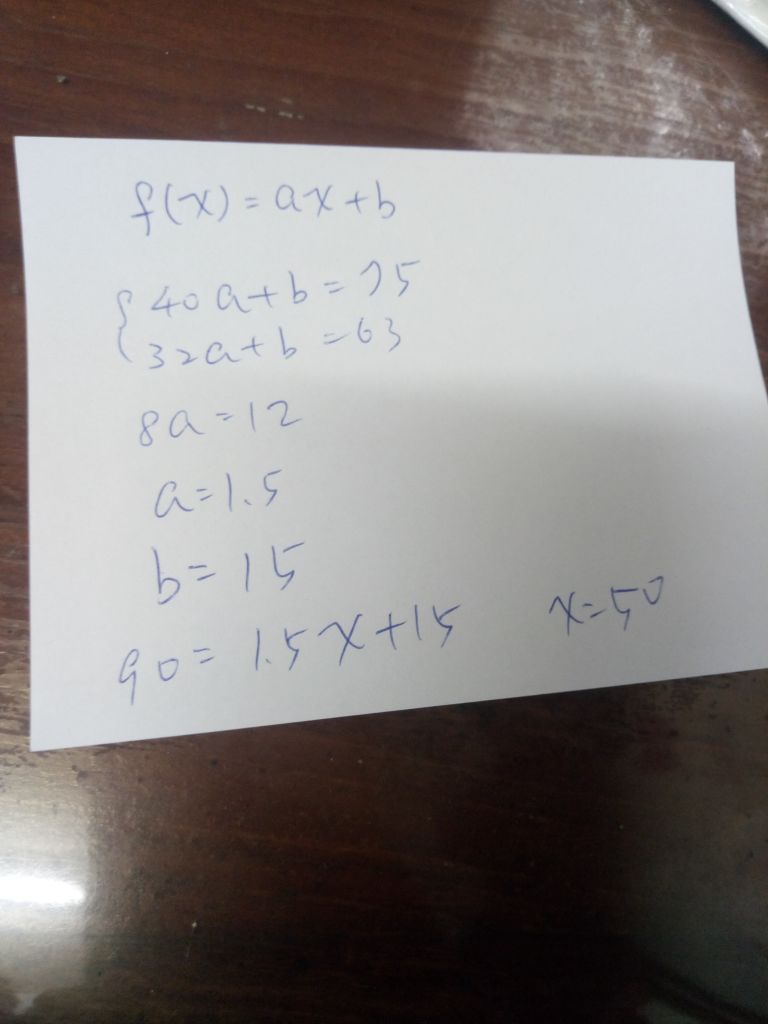 f(x)=ax+b
{40a+b=75
32a+b=63
8a=12
a=1.5
b=15
90=1.5x+15 x=50